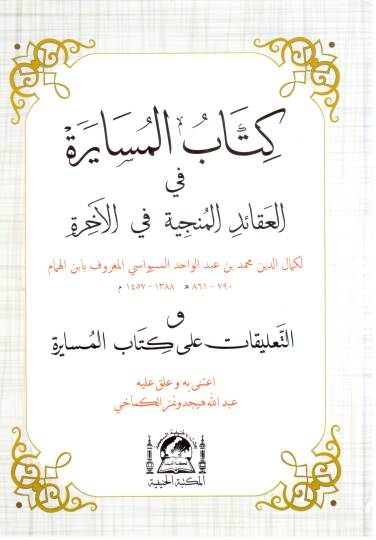 كِتَابُ المُسَايَرَة
في
العَقَائِدِ المُنْجِيَة في الآخِرَةِ
لكمال الدين محمد بن عبد الواحد السيواسي المعروف بابن الهمام
٧٩٠ - ٨٦١ ه ١٣٨٨ - ١٤٥٧ م
و
التَّعليقات على كِتَاب المُسايرة
اعتنى به وعلق عليه
عبد الله هيجدونمز الكماخي
المكتبة الحنيفية